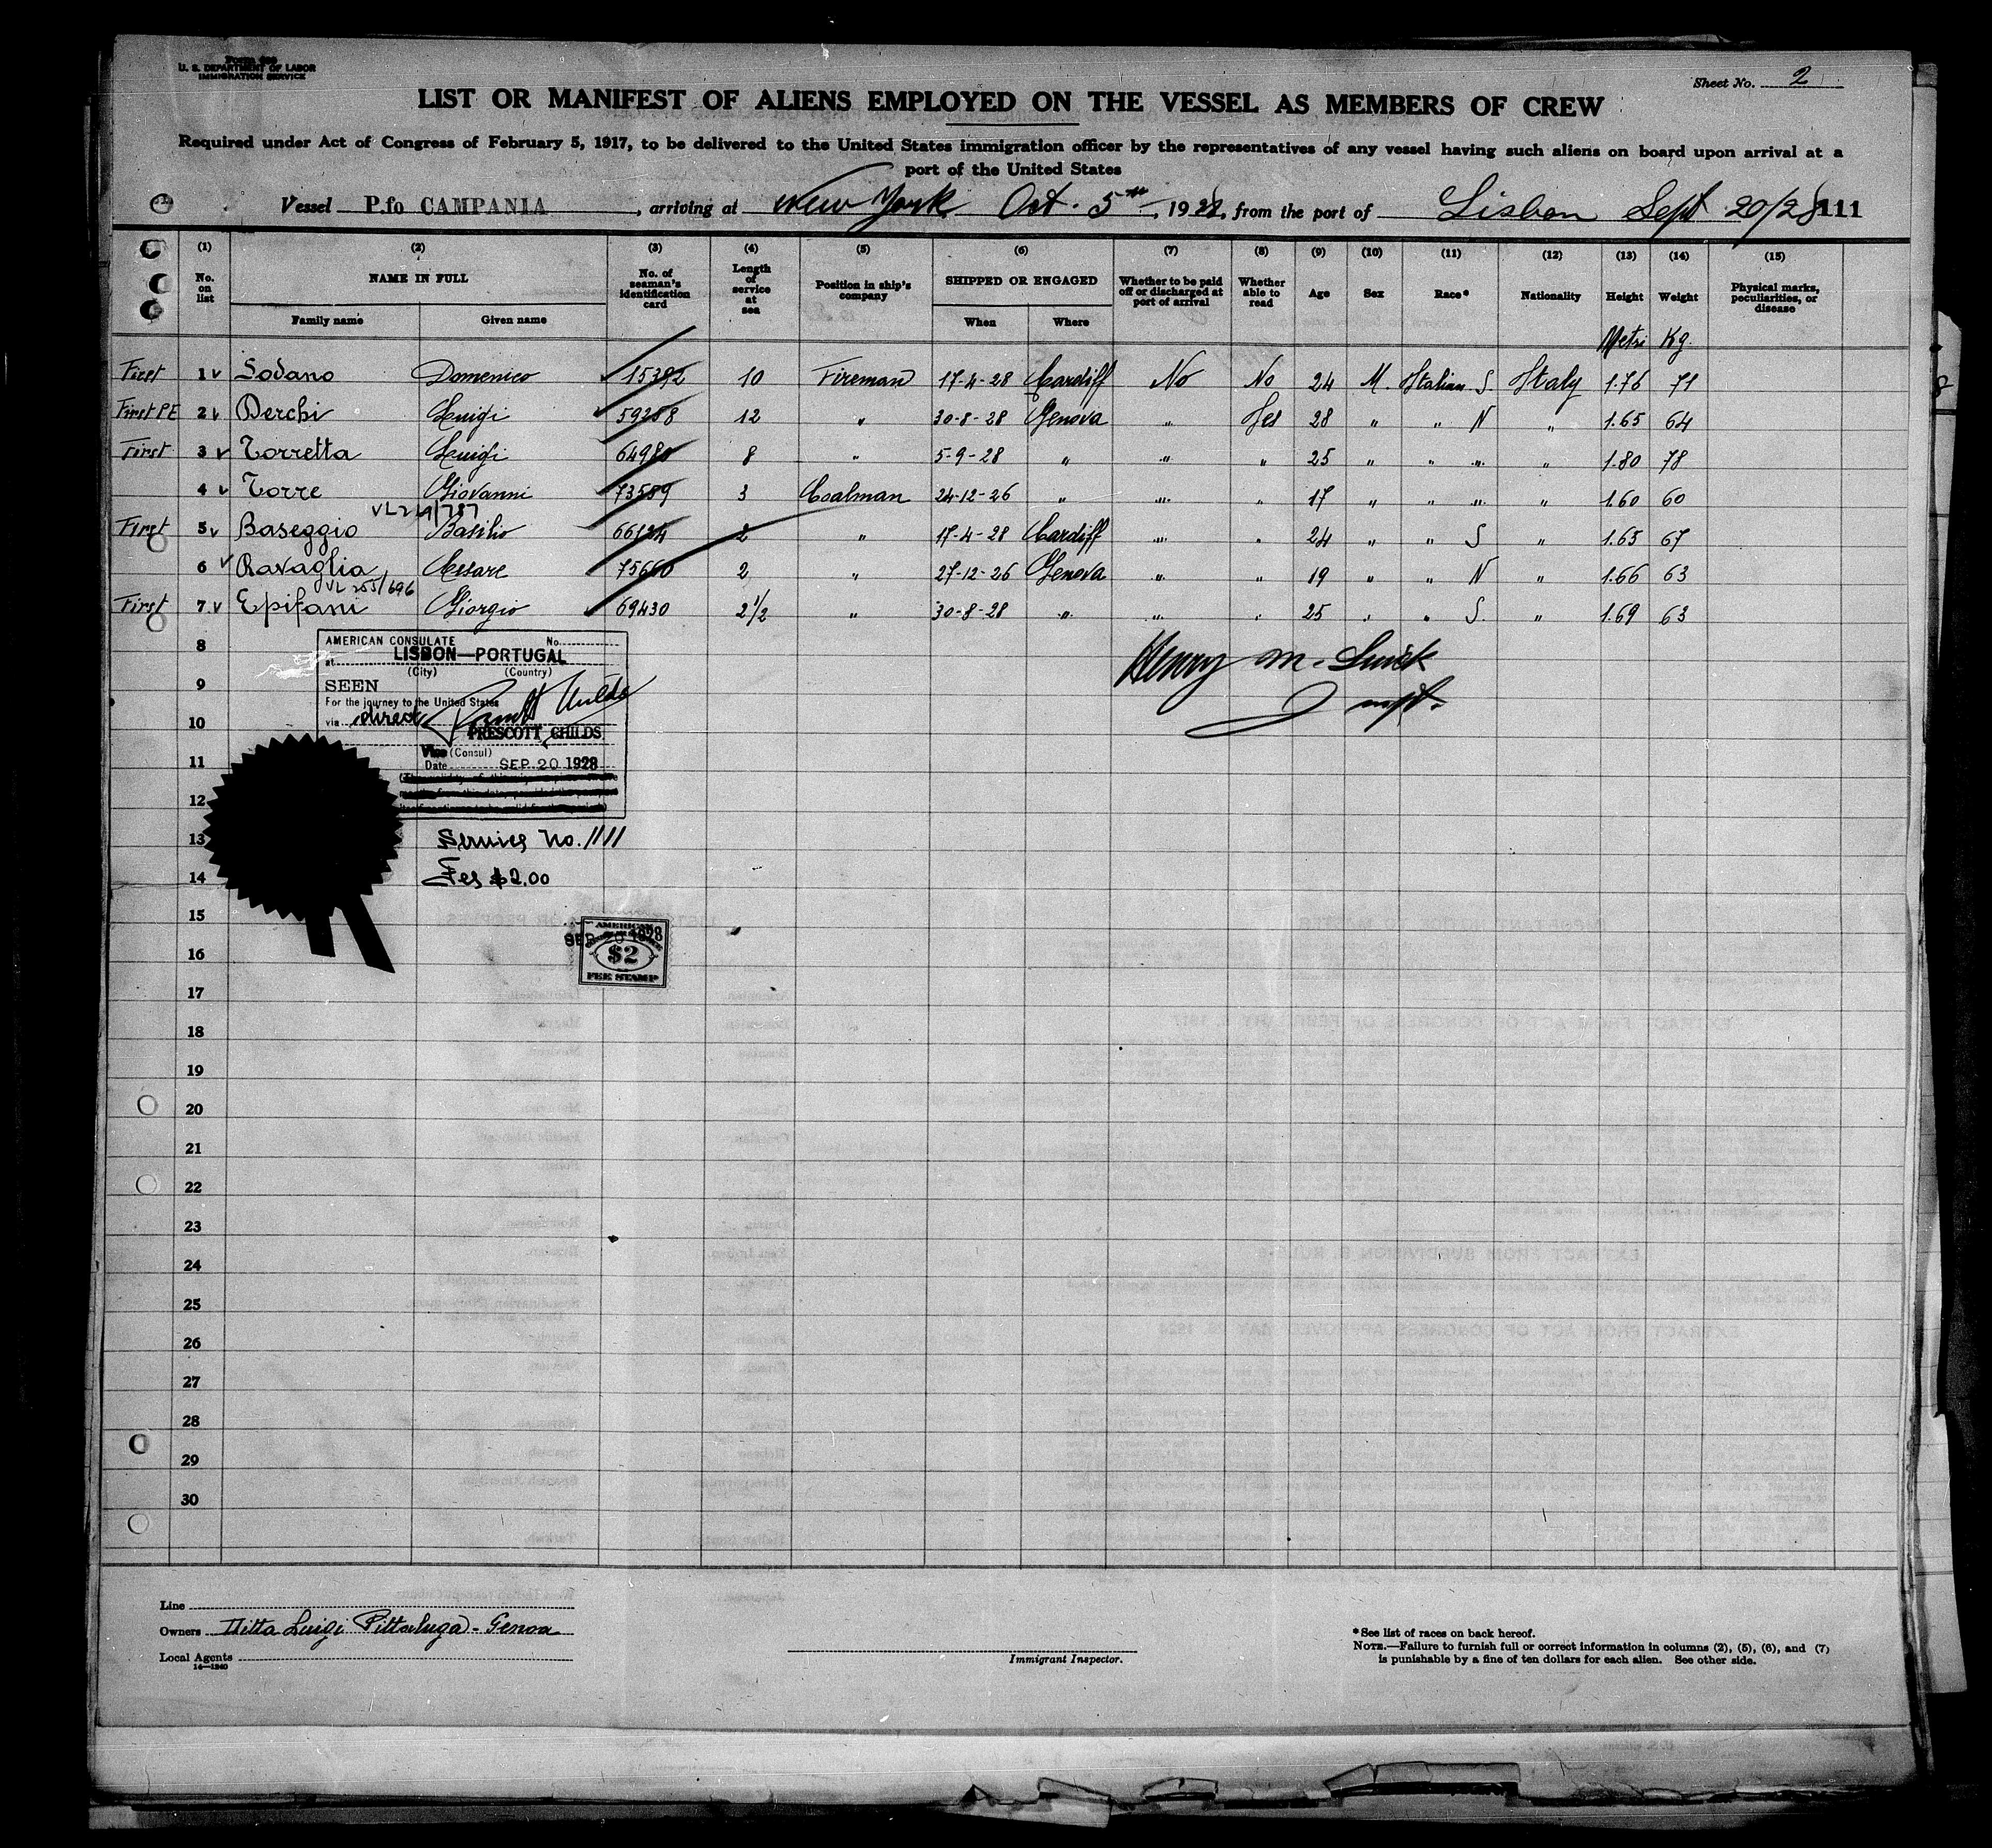 Form 689
U. S. DEPARTMENT OF LABOR
IMMIGRATION SERVICE
Sheet No. 2
LIST OR MANIFEST OF ALIENS EMPLOYED ON THE VESSEL AS MEMBERS OF CREW
Required under Act of Congress of February 5, 1917, to be delivered to the United States immigration officer by the representatives of any vessel having such aliens on board upon arrival at a
port of the United States
Vessel P.fo CAMPANIA, arriving at New York Oct. 5th, 1928, from the port of Lisbon Sept 20/28 111
(1) (2) (3) (4) (5) (6) (7) (8) (9) (10) (11) (12) (13) (14) (15)
No. on list NAME IN FULL No. of seaman's identification card Length of service at sea Position in ship's company SHIPPED OR ENGAGED Whether to be paid off or discharged at port of arrival Whether able to read Age Sex Race* Nationality Height Weight Physical marks, peculiarities, or disease
Family name Given name When Where
Metri Kg.
First 1 v Lodano Domenico 15392 10 Fireman 17-4-28 Cardiff No No 24 M. Italian S Italy 1.76 71
First PE 2 v Derchi Luigi 59258 12 " 30-8-28 Genova " Yes 28 " " N " 1.65 64
First 3 v Torretta Luigi 64980 8 " 5-9-28 " " " 25 " " " " 1.80 78
4 v Torre Giovanni 73589 3 Coalman 24-12-26 " " " 17 " " " " 1.60 60
VL 249/787
First 5 v Baseggio Basilio 66124 2 " 17-4-28 Cardiff " " 24 " " S " 1.65 67
6 v Ravaglia Cesare 75660 2 " 27-12-26 Genova " " 19 " " N " 1.66 63
VL 255/696
First 7 v Epifani Giorgio 69430 2 1/2 " 30-8-28 " " " 25 " " S. " 1.69 63
8
9
10
11
12
13
14
15
16
17
18
19
20
21
22
23
24
25
26
27
28
29
30
AMERICAN CONSULATE No.
at LISBON—PORTUGAL
(City) (Country)
SEEN
For the journey to the United States
via direct
PRESCOTT CHILDS
Vice (Consul)
Date SEP 20 1928
Service No. 1111
Fee $2.00
SEP 20 1928
AMERICAN
$2
FEE STAMP
Henry M.
Inspt.
Line
Owners Ditta Luigi Pittaluga - Genoa
Local Agents
14—1240
Immigrant Inspector.
*See list of races on back hereof.
NOTE.—Failure to furnish full or correct information in columns (2), (5), (6), and (7)
is punishable by a fine of ten dollars for each alien. See other side.